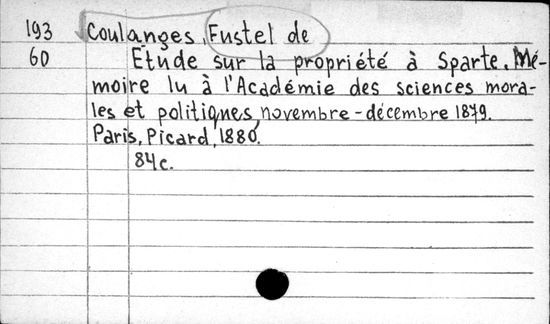 193 Coulanges, Fustel de
60 Etude sur la propriété à Sparte. Mé-
moire lu à l'Académie des sciences mora-
les et politiques novembre-décembre 1879.
Paris, Picard, 1880.
84 c.